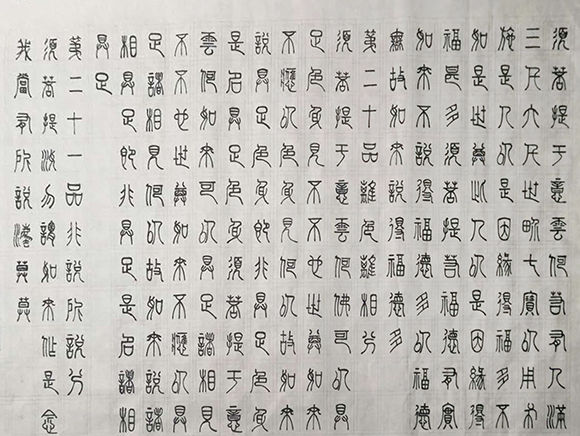 須菩提于意雲何若有人滿
三千大千世界七寶以用布
施是人以是因緣得福多不
如是世尊此人以是因緣得
福甚多須菩提若福德有實
如來不說得福德多以福德
無故如來說得福德多
第二十品離色離相分
須菩提于意雲何佛可以具
足色身見不不也世尊如來
不應以色身見何以故如來
說具足色身即非具足色身
是名具足色身須菩提于意
雲何如來可以具足諸相見
不不也世尊如來不應以具
足諸相見何以故如來說諸
相具足即非具足是名諸相
具足
第二十一品非說所說分
須菩提汝勿謂如來作是念
我當有所說灋莫莫